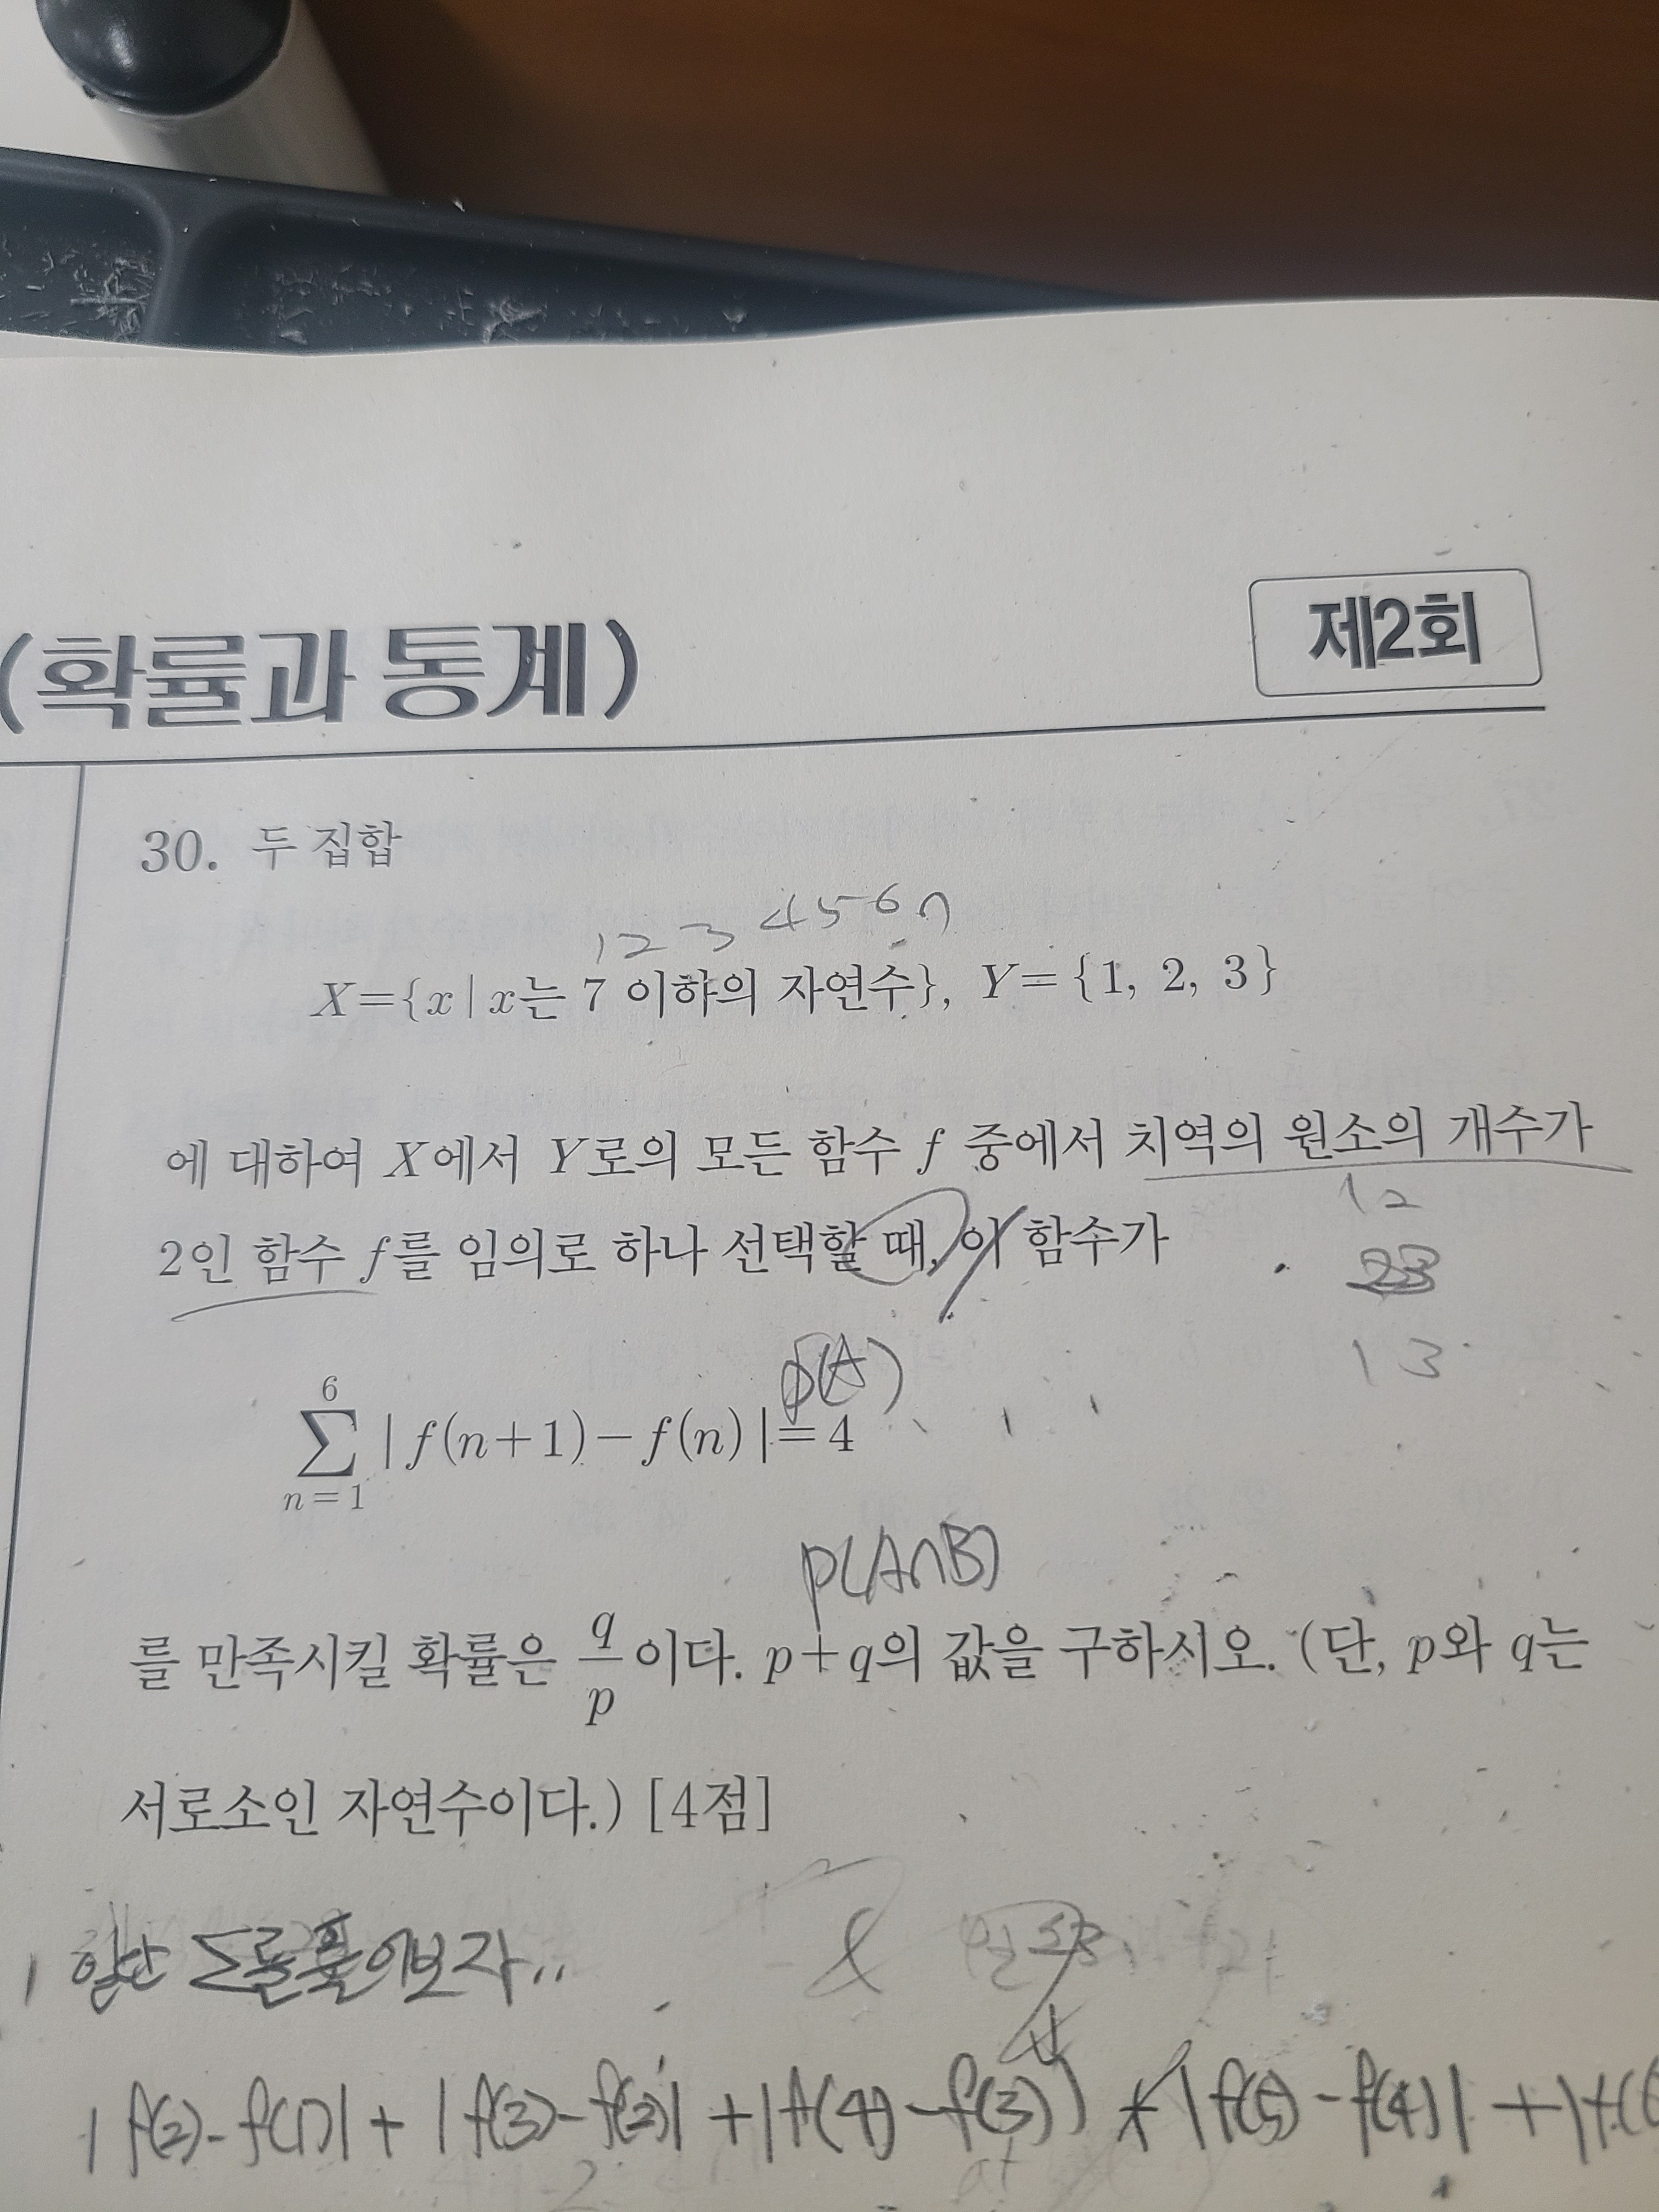 (확률과 통계)
제2회
30. 두 집합
1 2 3 4 5 6 7
X={x|x는 7 이하의 자연수}, Y={1, 2, 3}
에 대하여 X에서 Y로의 모든 함수 f 중에서 치역의 원소의 개수가
1 2
2인 함수 f를 임의로 하나 선택할 때, 이 함수가
23
1 3
P(A)
\sum_{n=1}^{6} |f(n+1)-f(n)|=4
P(A∩B)
를 만족시킬 확률은 \frac{q}{p}이다. p+q의 값을 구하시오. (단, p와 q는
서로소인 자연수이다.) [4점]
일단 Σ를 풀어보자..
|f(2)-f(1)|+|f(3)-f(2)|+|f(4)-f(3)|+|f(5)-f(4)|+|f(6